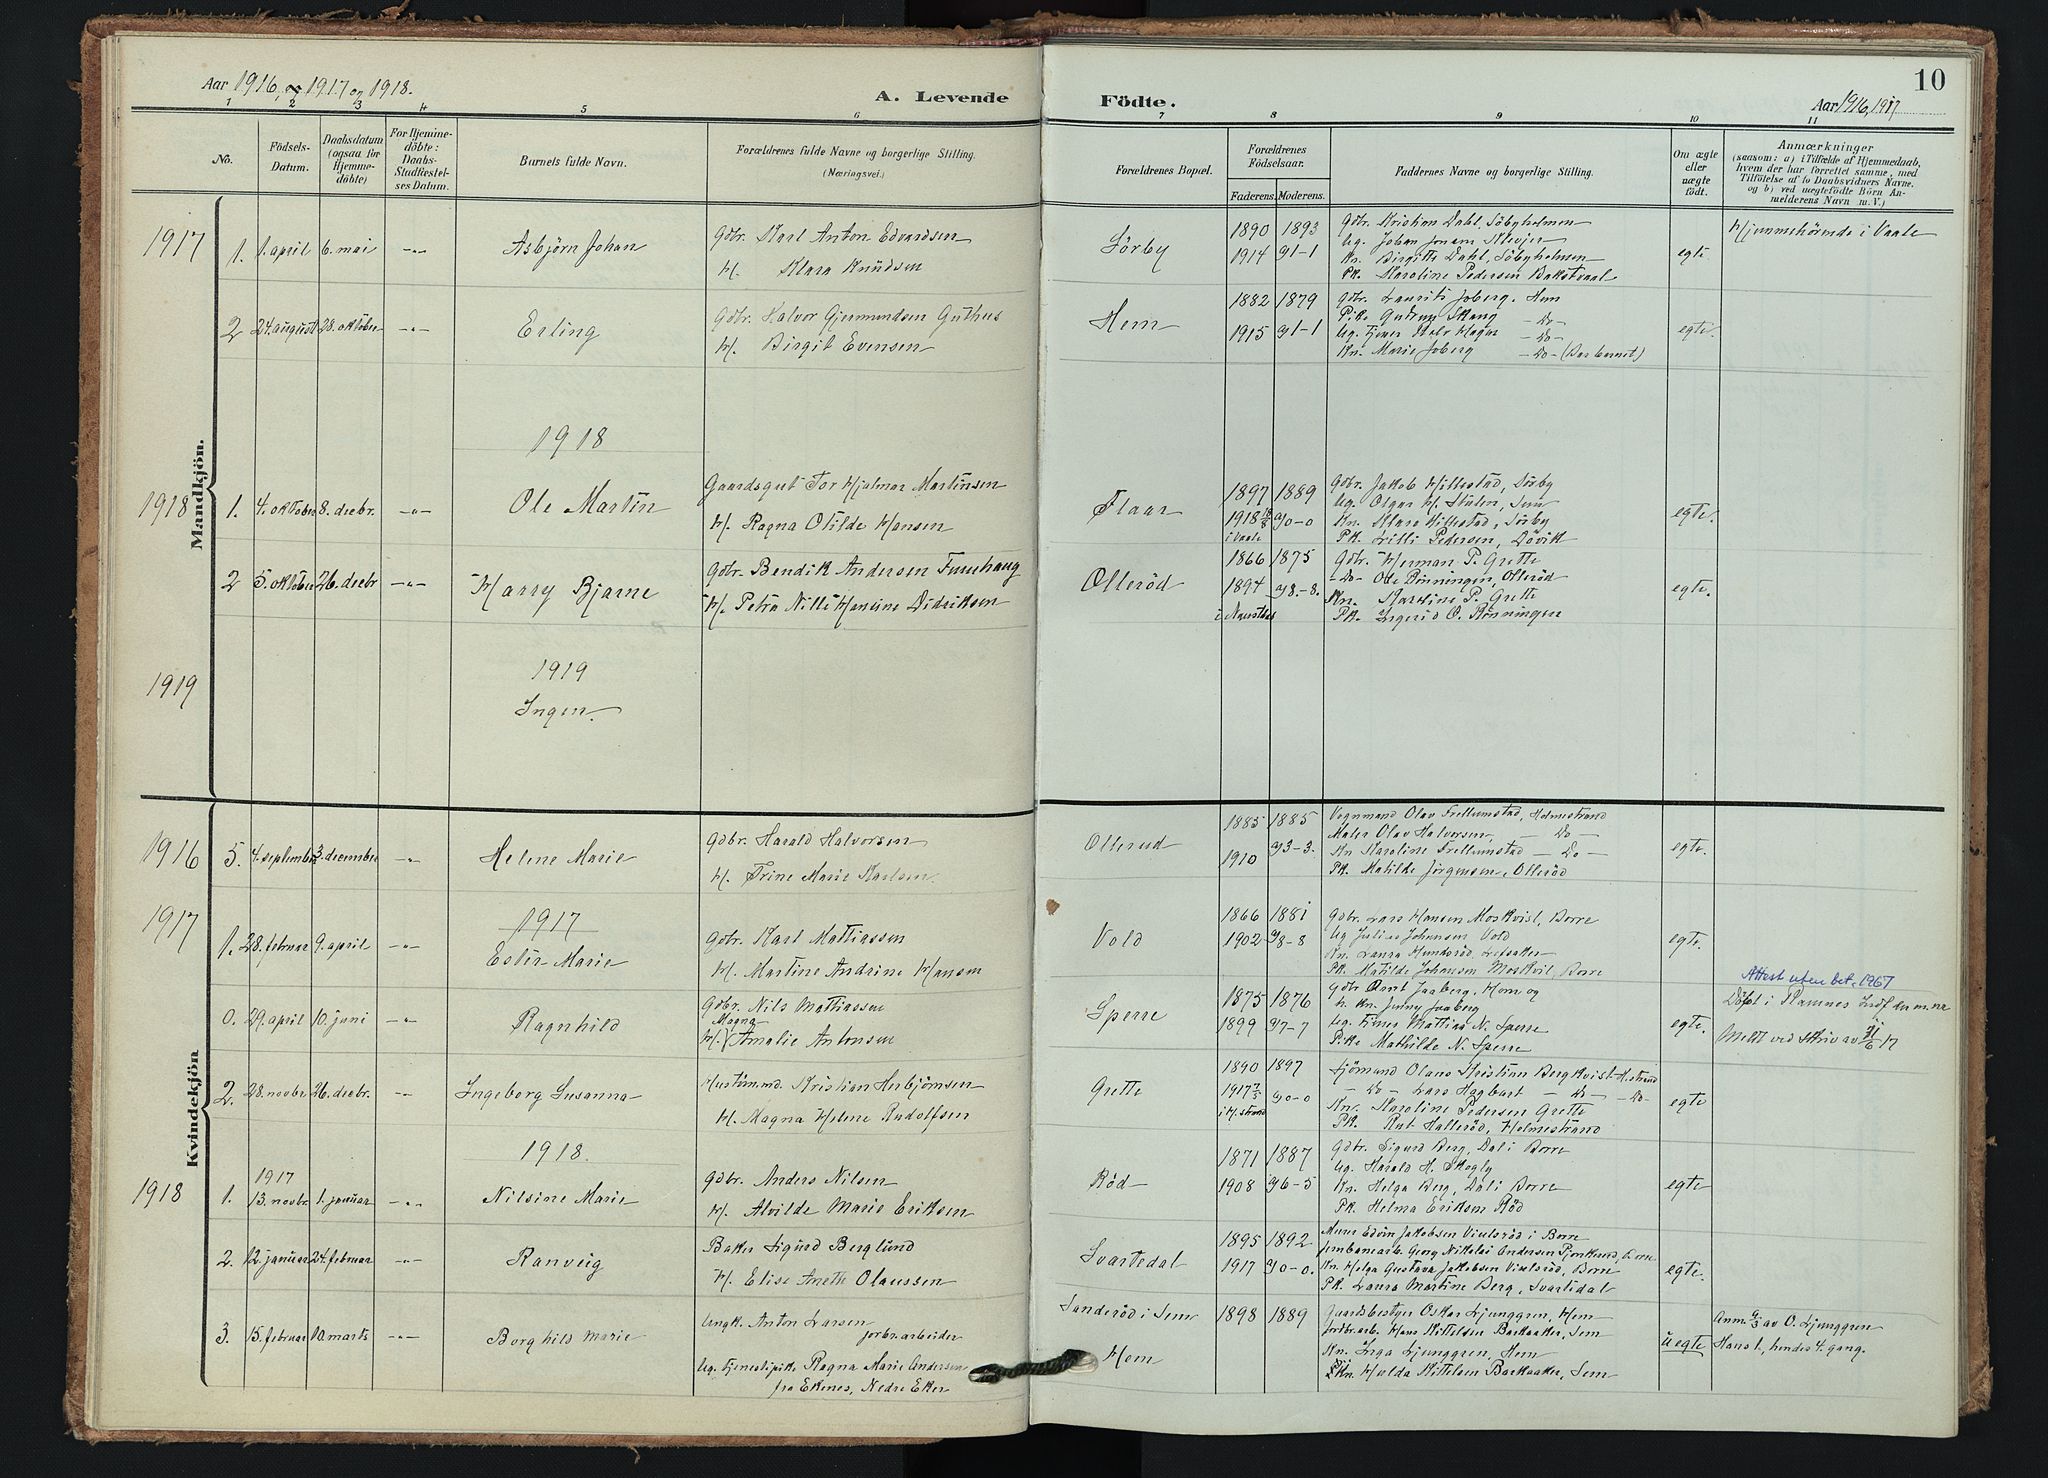 Aar 1916, og 1917 og 1918.
A. Levende
Födte.
Aar 1916, 1917
10
1 2 3 4 5 6 7 8 9 10 11
No.
Födsels-Datum.
Daabsdatum (ogsaa for Hjemmedöbte)
For Hjemmedöbte: Daabs-Stadfæstelses Datum.
Barnets fulde Navn.
Forældrenes fulde Navne og borgerlige Stilling.
(Næringsvei.)
Forældrenes Bopæl.
Forældrenes Födselsaar.
Faderens. Moderens.
Faddernes Navne og borgerlige Stilling.
Om ægte eller uægte födt.
Anmærkninger
(saasom: a) i Tilfælde af Hjemmedaab,
hvem der har forrettet samme, med
Tilföielse af to Daabsvidners Navne.
og b) ved uægtefödte Börn An-
melderens Navn m. V.)
Mandkjön.
1917
1. 1. april 6. mai -"- Asbjörn Johan
Gdbr. Karl Anton Edvardsen
H. Klara Knudsen
Sörby
1890 1893
1914 9/1-1
Gdbr. Kristian Dahl, Söbyholmen
Ug. Johan Jonsen Klevjer
Kn. Birgitte Dahl, Söbyholmen
Pk. Karoline Pedersen Bakstvaal
egte
Hjemmehörende i Vaale
2 24. august 28. oktober -"- Erling
Gdbr. Halvor Gjermundsen Guthus
H. Birgit Evensen
Hem
1882 1879
1915 9/1-1
Gdbr. Laurits Joberg. Hem
Pike Gudrun Skaug -Do-
Ug. Tjener Halv Hagen -Do-
Kn. Marie Joberg -Do- (Bar barnet)
egte.
1918
1918
1. 4. oktober 8. decbr. -"- Ole Martin
Gaardsgut Tor Hjalmar Martinsen
H. Ragna Otilde Hansen
Flaar
1897 1889
1918 9/0-0
i Vaale
Gdbr. Jakob Hillestad, Sörby
Ug. Oscar H. Stulen, Sem
Kn. Klara Hillestad, Sörby
Pk. Lilli Pedersen, Dövik
egte.
2 5. oktober 26. decbr -"- Harry Bjarne
Gdbr. Bendik Andersen Furuhaug
H. Petra Nilli Hansine Didriksen
Olleröd
1866 1875
1894 9/8-8.
Gdbr. Herman P. Grette
-Do- Ole Rönningen, Olleröd
Kn. Karoline P. Grette
Pk. Ingerid O. Rönningen
egte.
1919
1919
Ingen.
Kvindekjön
1916
5. 4. september 3. december -"- Helene Marie
Gdbr. Harald Halvorsen
H. Trine Marie Karlsen.
Ollerud
1885 1885
1910 9/3-3.
Vognmand Olav Frellumstad, Holmestrand
Maler Olav Halvorsen, -Do-
Kn Karoline Frellumstad -Do-
Pk. Matilde Jörgensen, Olleröd
egte.
1917
1917
1. 28. februar 9. april -"- Ester Marie
Gdbr. Karl Mattiassen
H. Martine Andrine Hansen
Vold
1866 1881
1902 9/8-8
Gdbr. Lars Hansen Moskvist, Borre
Ug Julius Johansen Vold
Pk. Matilde Johansen Moskvil, Borre
egte.
0. 29. april 10. juni -"- Ragnhild
Gdbr. Nils Mattiassen
Magna
H. Amalie Antonsen
Sperre
1875 1876
1899 9/7-7
Gdbr Arnt Jaaberg, Hem og
h. kn. Jenny Jaaberg
Ug. Tjener Mattias N. Sperre
Pike Mathilde N. Sperre
egte.
Attest uten bet. 1967
Döpt i Ramnes
Meldt ved skriv av 21/6 17
2. 28. novbr 26. decbr. -"- Ingeborg Susanna
Hustömmd. Kristian Herbjörnsen
H. Magna Helene Rudolfsen
Grette
1890 1897
1917 9/0-0
i H.strand
Sjömand Olaus Kristian Bergkvist H.strand
-Do- Lars Hagbart -Do- -Do-
Kn. Karoline Pedersen Grette
Pk. Rut Halleröd, Holmestrand
egte
1918.
1918
1917
1. 13. novbr. 1. januar -"- Nilsine Marie
Gdbr. Anders Nilsen
H. Alvilde Marie Eriksen
Röd
1871 1887
1908 9/6-5
Gdbr. Sigurd Berg, Dal i Borre
Ug. Harald H. Skogly
Kn. Helga Berg, Dal i Borre
Pk. Helma Eriksen Röd
egte
2. 12. januar 24. februar -"- Ranveig
Baker Sigurd Berglund
H. Elise Anette Olaussen
Svartedal
1895 1892
1917 9/0-0.
Murer Edvin Jakobsen Viulsröd i Borre
Jernbanearb. Georg Nikolai Andersen, Borre
Kn. Helga Gustava Jakobsen Viulsröd, Borre
Pk. Laura Martine Berg, Svartedal
egte.
3. 15. februar 10. marts -"- Borghild Marie
Ungk. Anton Larsen
jorbr.arbeider
Ug. Tjenestepike Ragna Marie Andersen
fra Ekenes, Nedre Eker
Sanderöd i Sem
Hem
1898 1889
Gaardsbestyr Oskar Ljunggren, Hem
Jordbr.arb. Hans Kittelsen Backaaker, Sem
Kn. Inga Ljunggren, Hem
Pk. Hulda Kittelsen Backaaker, Sem
uegte
Anm. 9/3 av O. Ljunggren
Hans 1, hendes 4. gang.